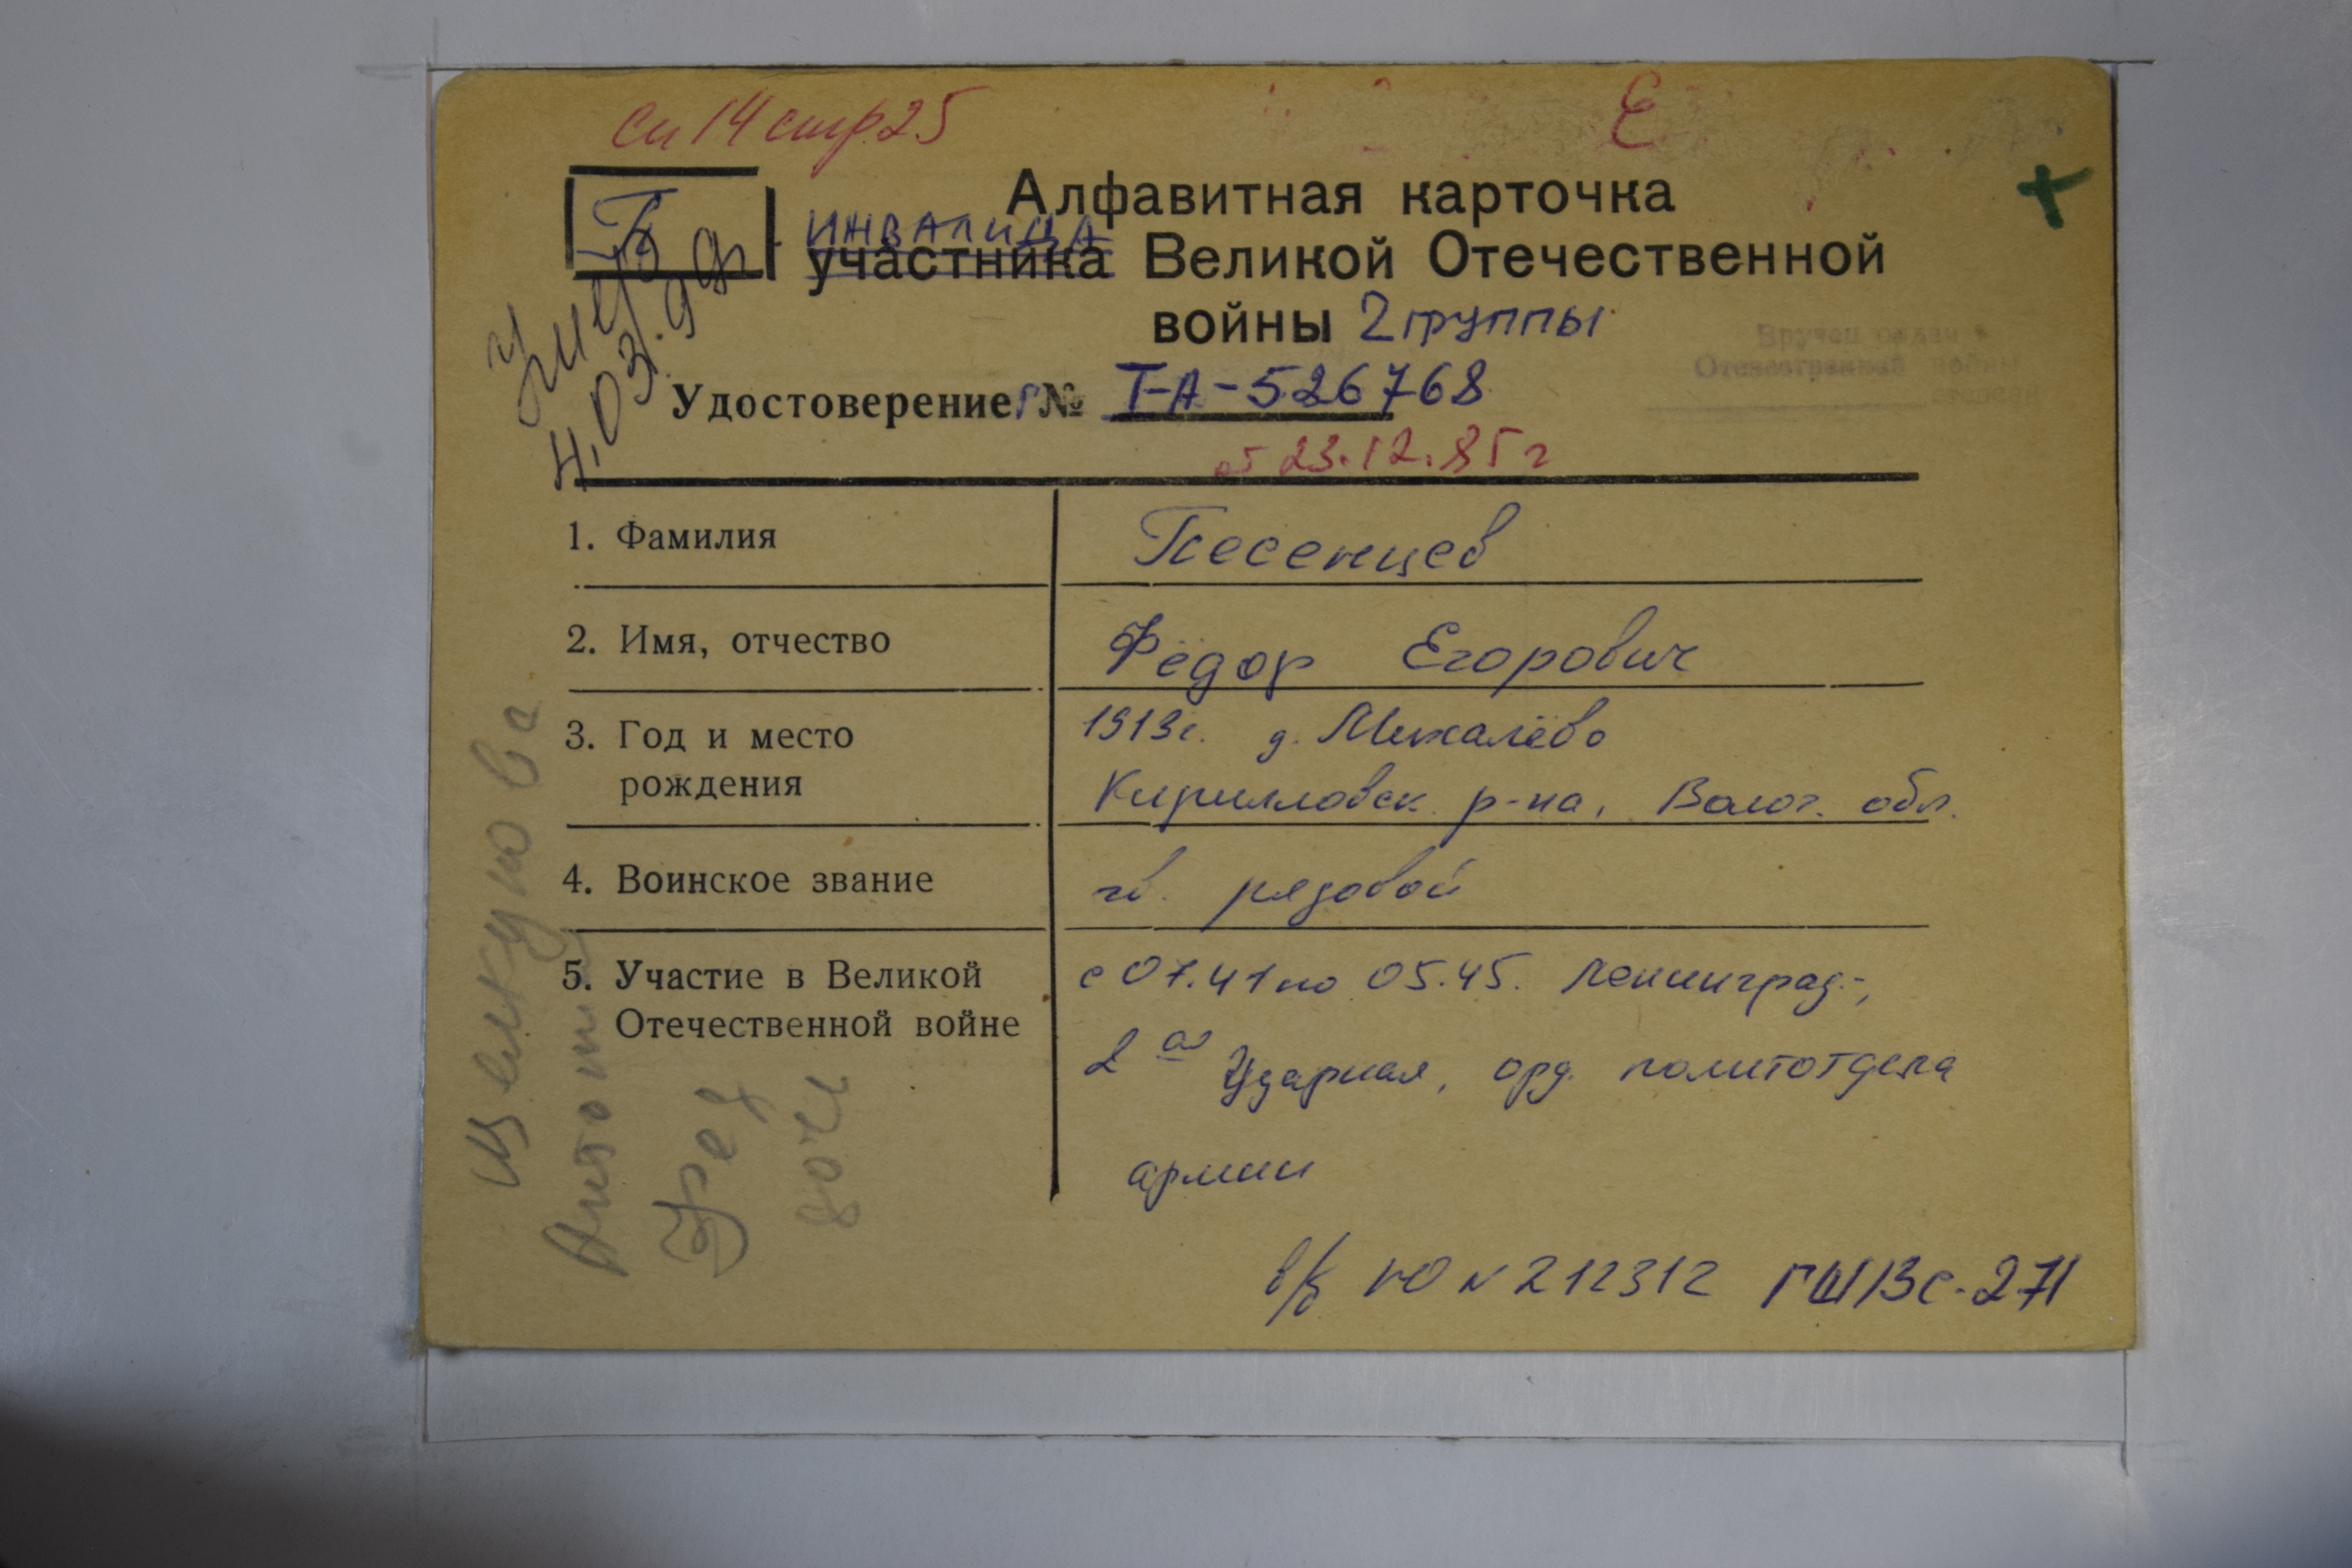 сп 14 стр 25
Е
П
Алфавитная карточка
инвалида
участника Великой Отечественной
войны 2 группы
Умер
4.03.99г
Вручен орден
Отечественной войны
степени
Удостоверение № Т-А-526768
от 23.12.85г
1. Фамилия Песенцев
2. Имя, отчество Фёдор Егорович
3. Год и место 1913г. д. Михалёво
рождения Кирилловск. р-на, Волог. обл.
4. Воинское звание гв. рядовой
5. Участие в Великой с 07.41 по 05.45. Ленинград.-,
Отечественной войне 2ая Ударная, орд. политотдела
армии
в/б НО № 212312 ГШ/ВС-271
дочь